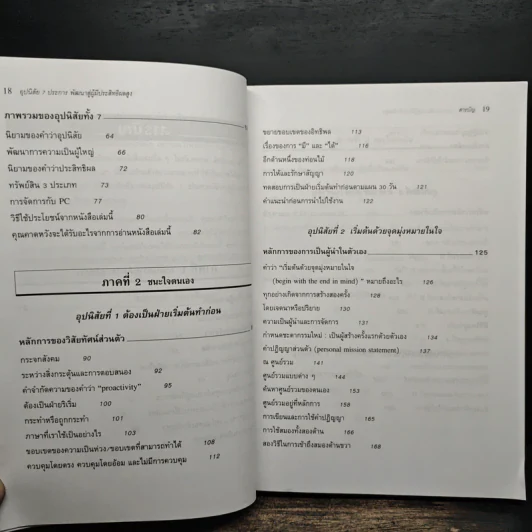 18 อุปนิสัย 7 ประการ พัฒนาสู่ผู้มีประสิทธิผลสูง
ภาพรวมของอุปนิสัยทั้ง 7
นิยามของคำว่าอุปนิสัย 64
พัฒนาการความเป็นผู้ใหญ่ 66
นิยามของคำว่าประสิทธิผล 72
ทรัพย์สิน 3 ประเภท 73
การจัดการกับ PC 77
วิธีใช้ประโยชน์จากหนังสือเล่มนี้ 80
คุณคาดหวังจะได้รับอะไรจากการอ่านหนังสือเล่มนี้ 82
ภาคที่ 2 ชนะใจตนเอง
อุปนิสัยที่ 1 ต้องเป็นฝ่ายเริ่มต้นทำก่อน
หลักการของวิสัยทัศน์ส่วนตัว
กระจกสังคม 90
ระหว่างสิ่งกระตุ้นและการตอบสนอง 92
คำจำกัดความของคำว่า "proactivity" 95
ต้องเป็นฝ่ายริเริ่ม 100
กระทำหรือถูกกระทำ 101
ภาษาที่เราใช้เป็นอย่างไร 103
ขอบเขตของความเป็นห่วง/ขอบเขตที่สามารถทำได้ 108
ควบคุมโดยตรง ควบคุมโดยอ้อม และไม่มีการควบคุม 112
สารบัญ 19
ขยายขอบเขตของอิทธิพล 113
เรื่องของการ "มี" และ "ได้" 116
อีกด้านหนึ่งของท่อนไม้ 118
การให้และรักษาสัญญา 120
ทดสอบการเป็นฝ่ายเริ่มต้นทำก่อนตามแผน 30 วัน 121
คำแนะนำก่อนการนำไปใช้งาน 122
อุปนิสัยที่ 2 เริ่มต้นด้วยจุดมุ่งหมายในใจ
หลักการของการเป็นผู้นำในตัวเอง 125
คำว่า "เริ่มต้นด้วยจุดมุ่งหมายในใจ
(begin with the end in mind) " หมายถึงอะไร 126
ทุกอย่างเกิดจากการสร้างสองครั้ง 128
โดยเจตนาหรือปริยาย 130
ความเป็นผู้นำและการจัดการ 131
กำหนดชะตากรรมใหม่ : เป็นผู้สร้างครั้งแรกด้วยตัวเอง 134
คำปฏิญญาส่วนตัว (personal mission statement) 137
ณ ศูนย์รวม 141
ศูนย์รวมแบบต่าง ๆ 144
ค้นหาศูนย์รวมของตนเอง 153
ศูนย์รวมอยู่ที่หลักการ 156
การเขียนและการใช้คำปฏิญญา 165
การใช้สมองทั้งสองด้าน 166
สองวิธีในการเข้าถึงสมองด้านขวา 168